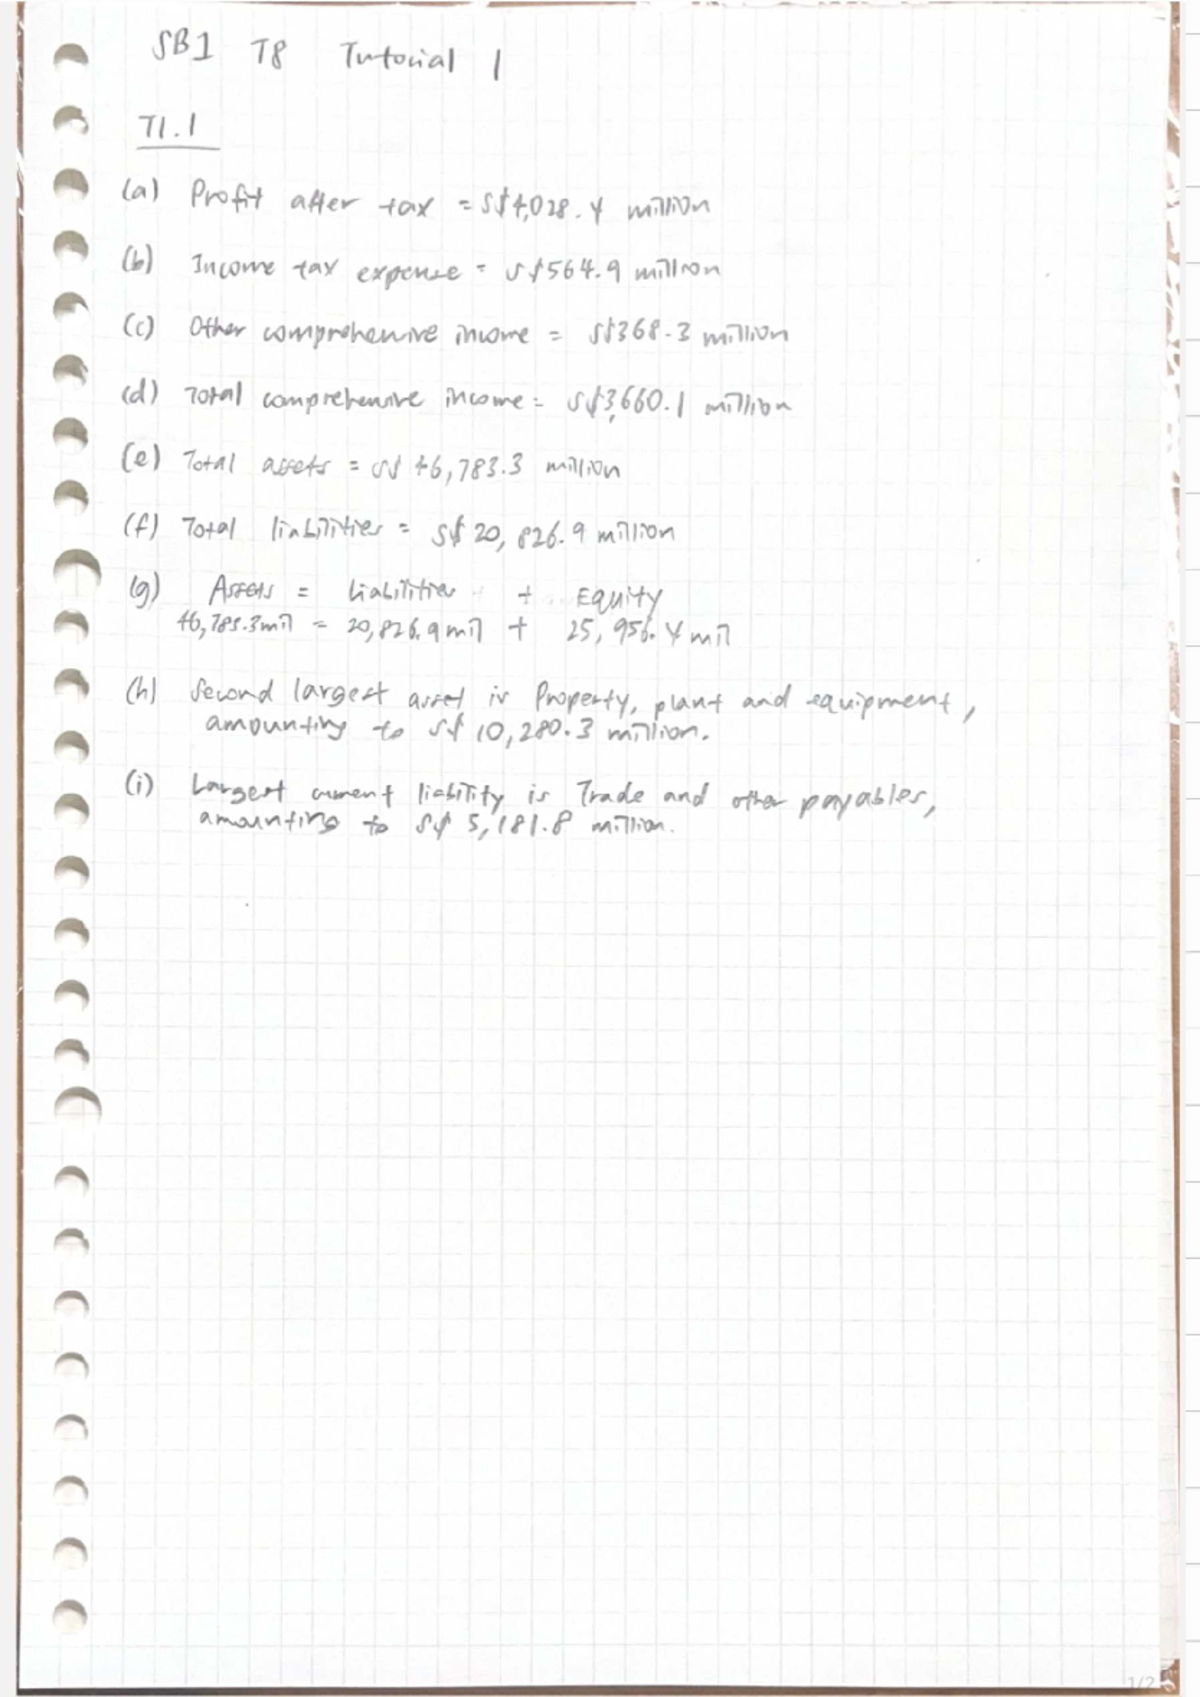 SB1 T8 Tutorial 1
T1.1
(a) Profit after tax = S$4,028.4 million
(b) Income tax expense = S$564.9 million
(c) Other comprehensive income = S$368.3 million
(d) Total comprehensive income = S$3,660.1 million
(e) Total assets = S$ 46,783.3 million
(f) Total liabilities = S$ 20,826.9 million
(g) Assets = Liabilities + Equity
46,783.3mil = 20,826.9mil + 25,956.4 mil
(h) Second largest asset is Property, plant and equipment,
amounting to S$ 10,280.3 million.
(i) Largest current liability is Trade and other payables,
amounting to S$ 5,181.8 million.
1/2